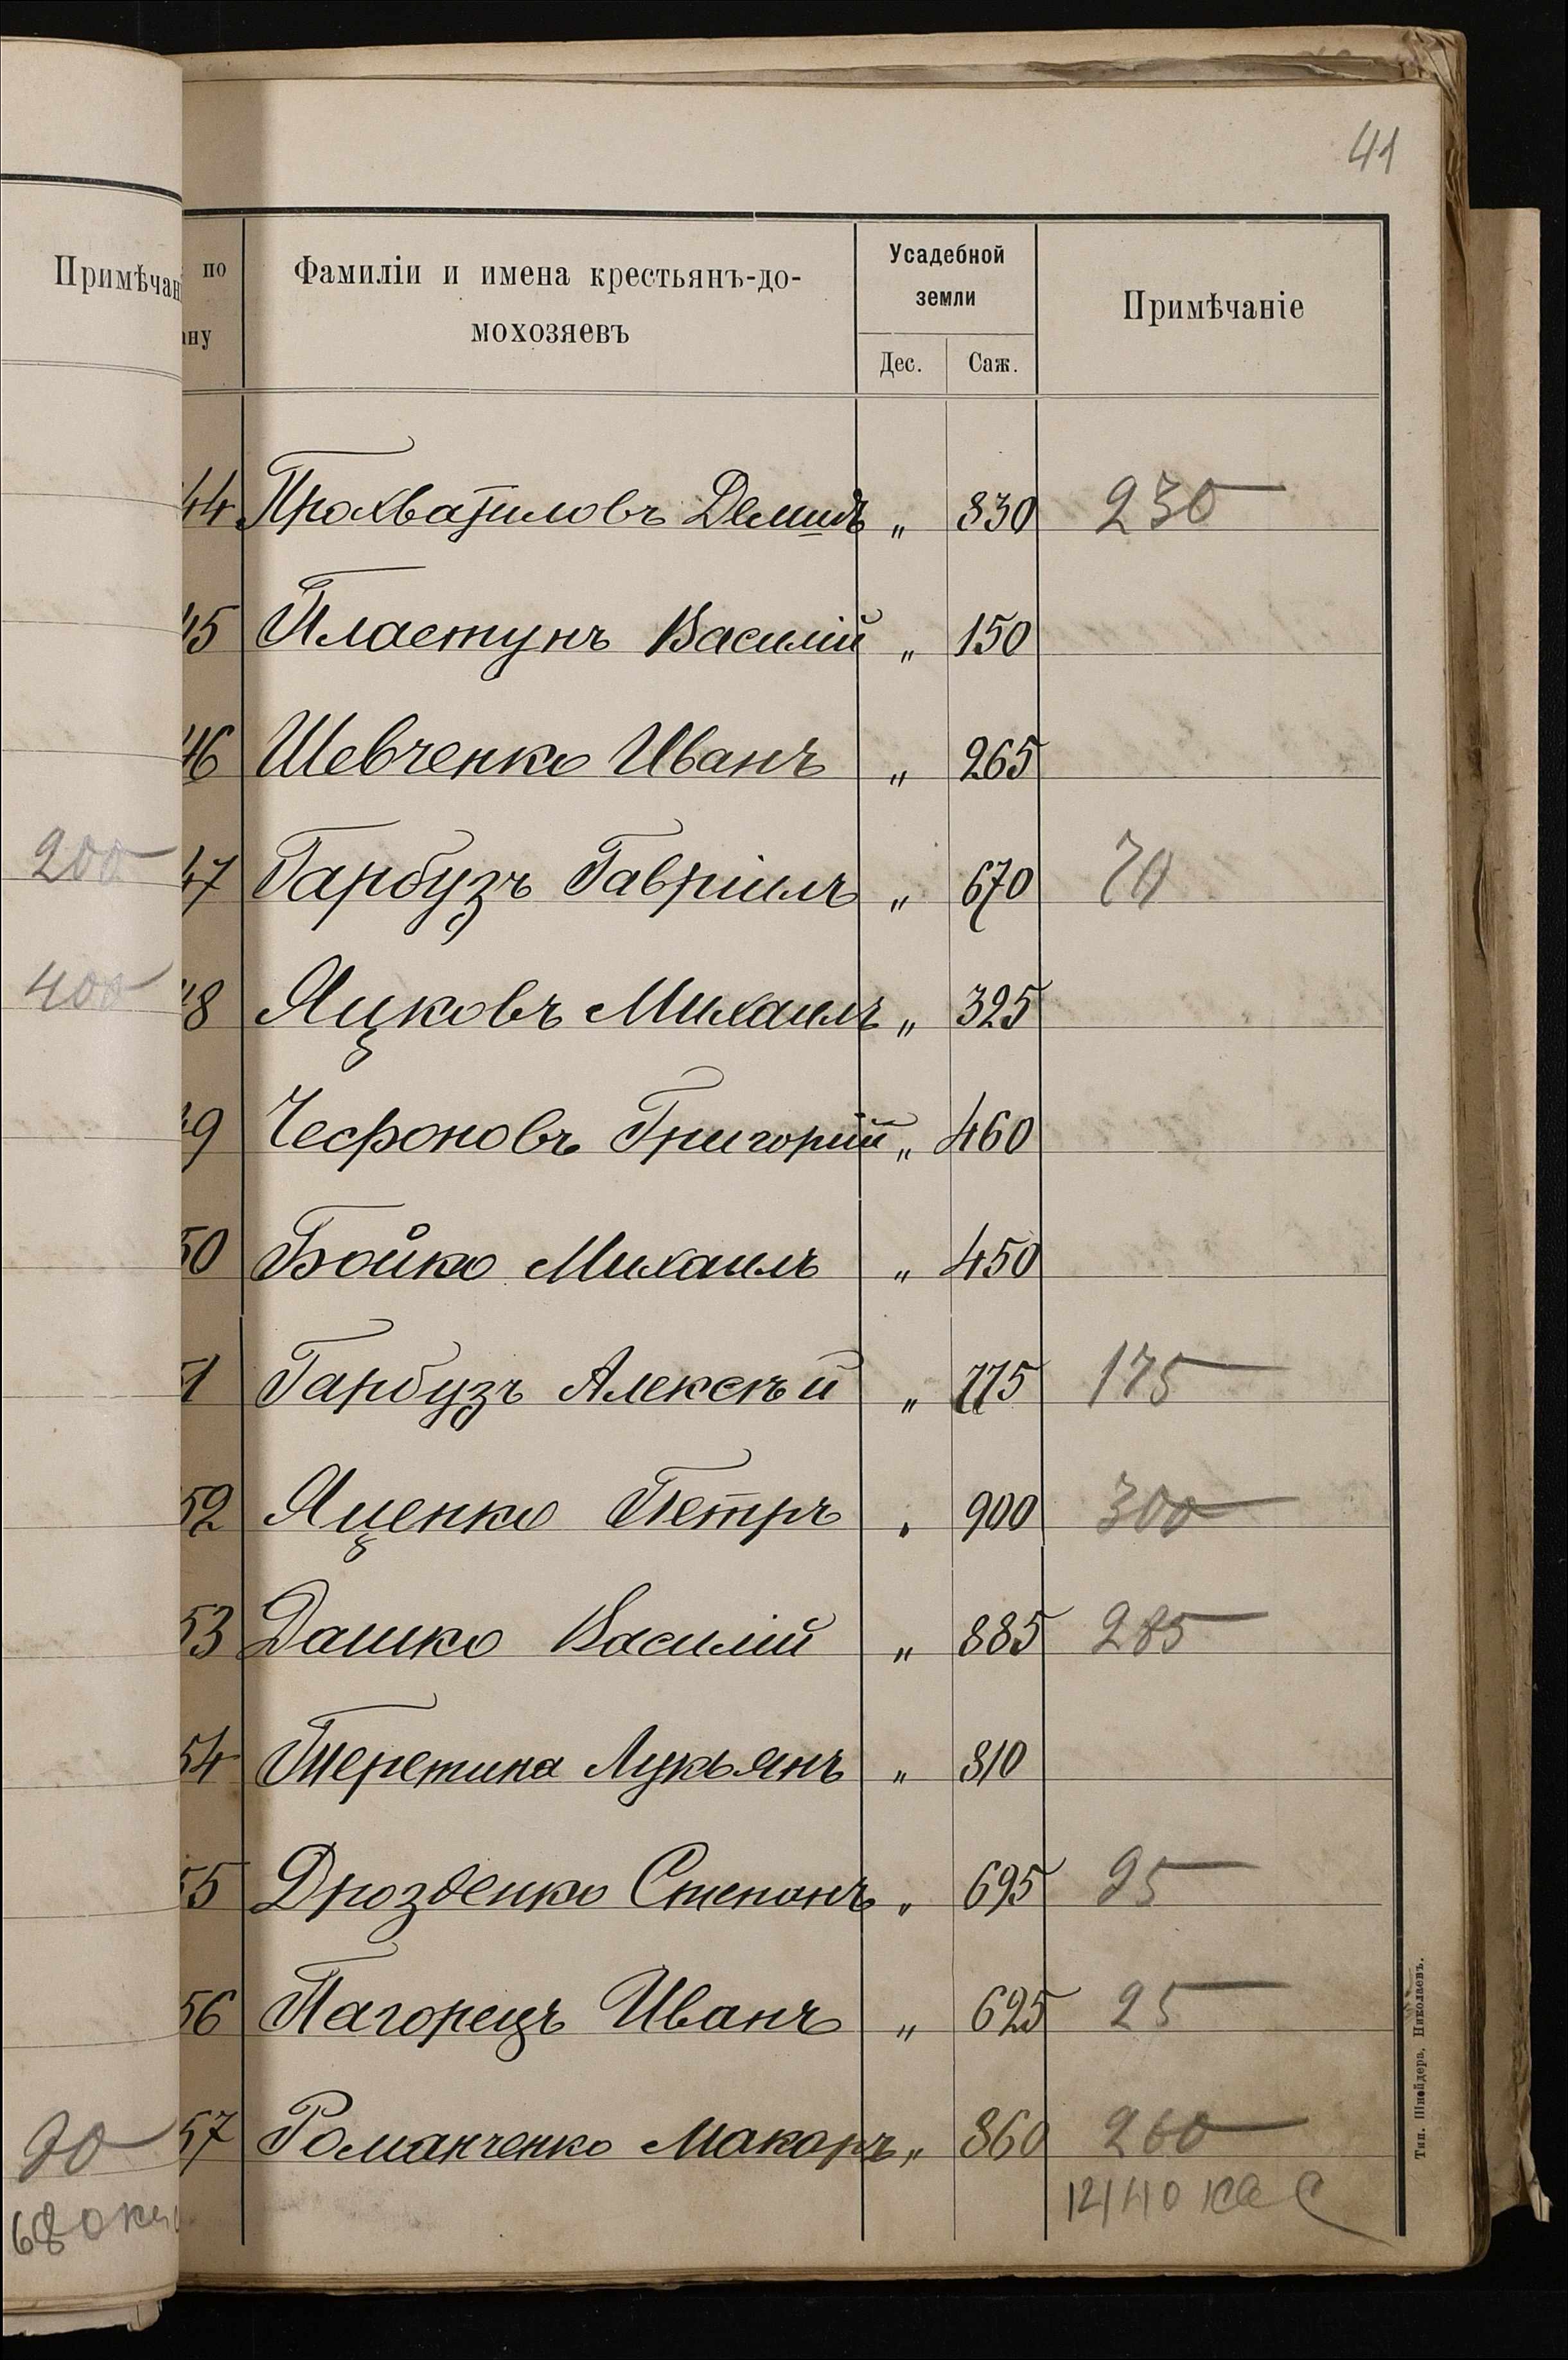 41
Примѣчан
по
ану
Фамиліи и имена крестьянъ-до-
мохозяевъ
Усадебной
земли
Дес. Саж.
Примѣчаніе
44 Прохватиловъ Демидъ „ 830 230
45 Пластунъ Василій „ 150
46 Шевченко Иванъ „ 265
200
47 Гарбузъ Гавріилъ „ 670 70
400
48 Яцковъ Михаилъ „ 325
49 Чесфоновъ Григорій „ 460
50 Бойко Михаилъ „ 450
51 Гарбузъ Алексѣй „ 775 175
52 Яценко Петръ „ 900 300
53 Дашко Василій „ 885 285
54 Теретина Лукьянъ „ 810
55 Дрозденко Степанъ „ 695 95
56 Пагорецъ Иванъ „ 625 25
90
57 Романченко Макаръ „ 860 260
680 кв
1440 кв с
Тип. Шнейдера, Николаевъ.